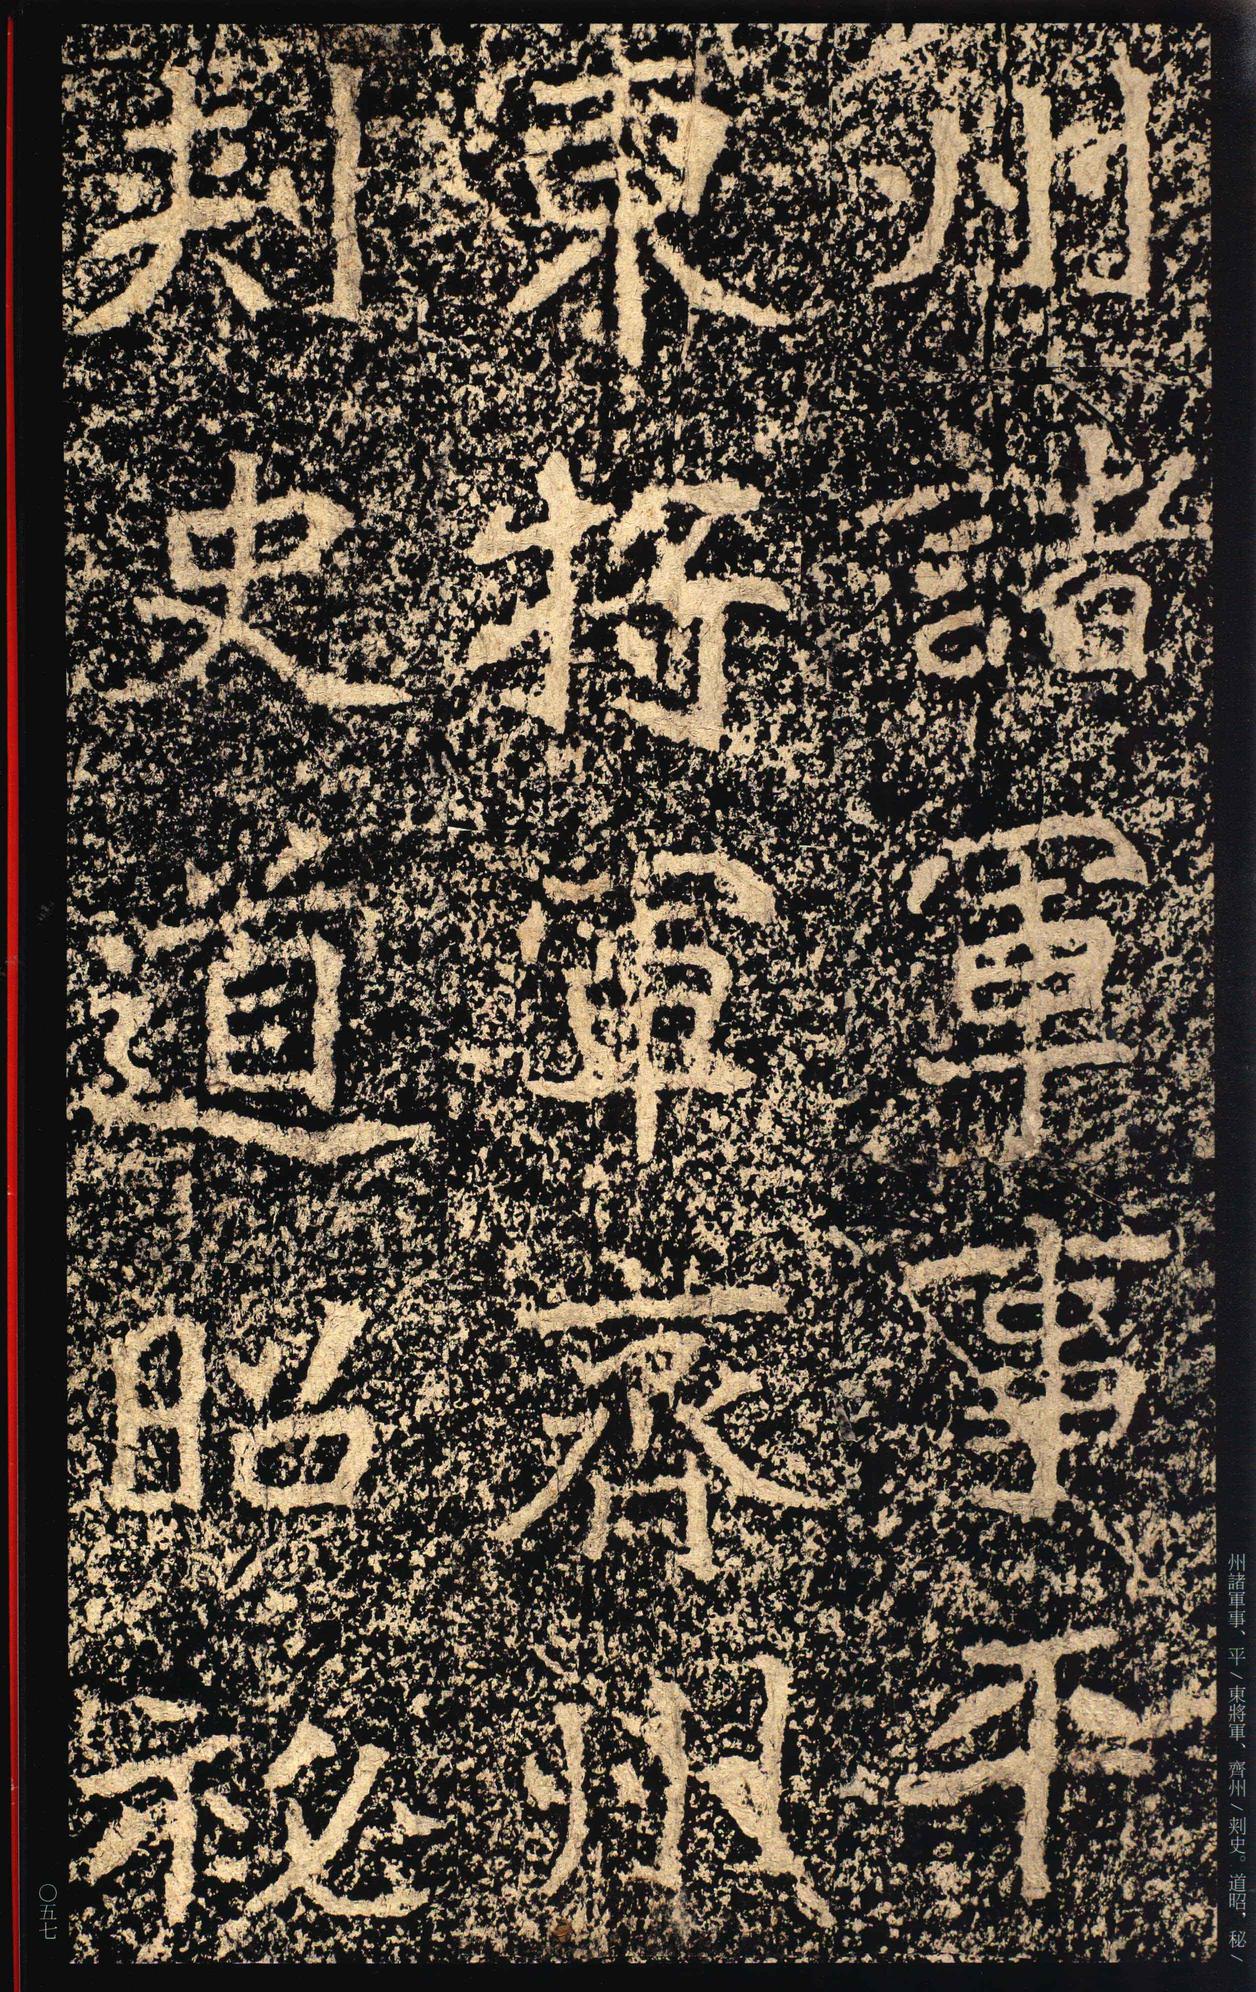 州諸軍事平
東將軍齊州
刾史道昭秘
州諸軍事、平/東將軍、齊州/刾史。道昭，秘/
〇五七